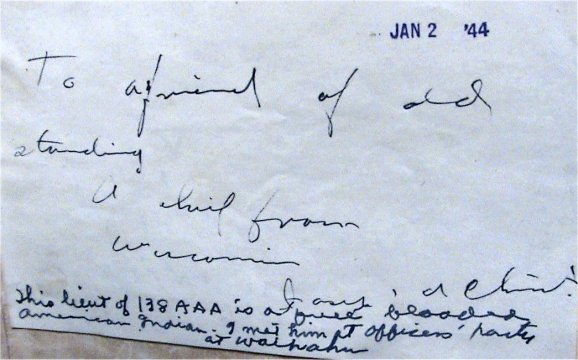 JAN 2 '44
To a friend of old
standing
A chief from
Wisconsin
This lieut of 138 AAA is a pure blooded
american Indian. I met him at officers' party
at Waimahu